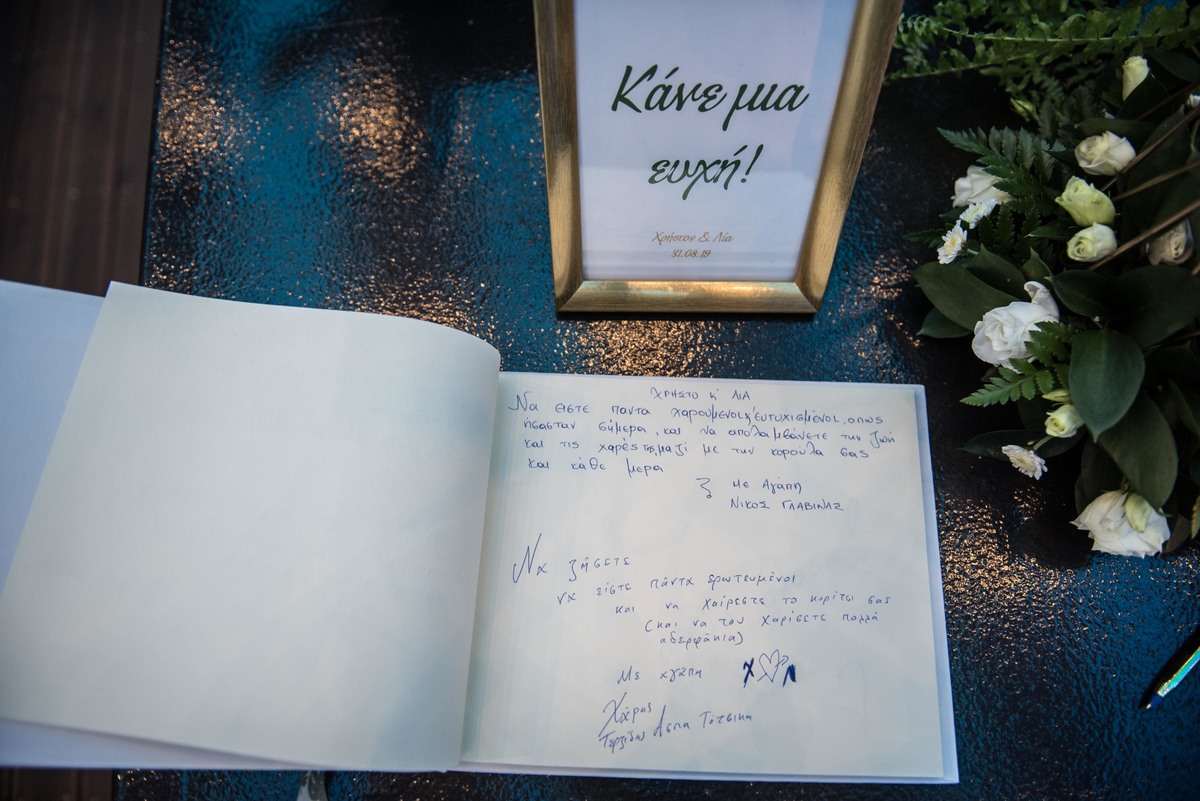 Κάνε μια
ευχή!
Χρήστος & Λία
31.08.19
ΧΡΗΣΤΟ Κ' ΛΙΑ
Να ειστε παντα χαρουμενοι κ' ευτυχισμένοι, οπως
ήσασταν σήμερα, και να απολαμβάνετε την ζωή
και τις χαρές της μαζί με την κορουλα σας
και κάθε μερα
Με Αγάπη
ΝΙΚΟΣ ΓΛΑΒΙΝΑΣ
Να ζήσετε
να είστε πάντα ερωτευμένοι
και να χαίρεστε το κορίτσι σας
(και να του χαρίσετε πολλά
αδερφάκια)
Με αγαπη Χ♡Λ
Χάρης
Τερζίδης Ασπα Τότσικα